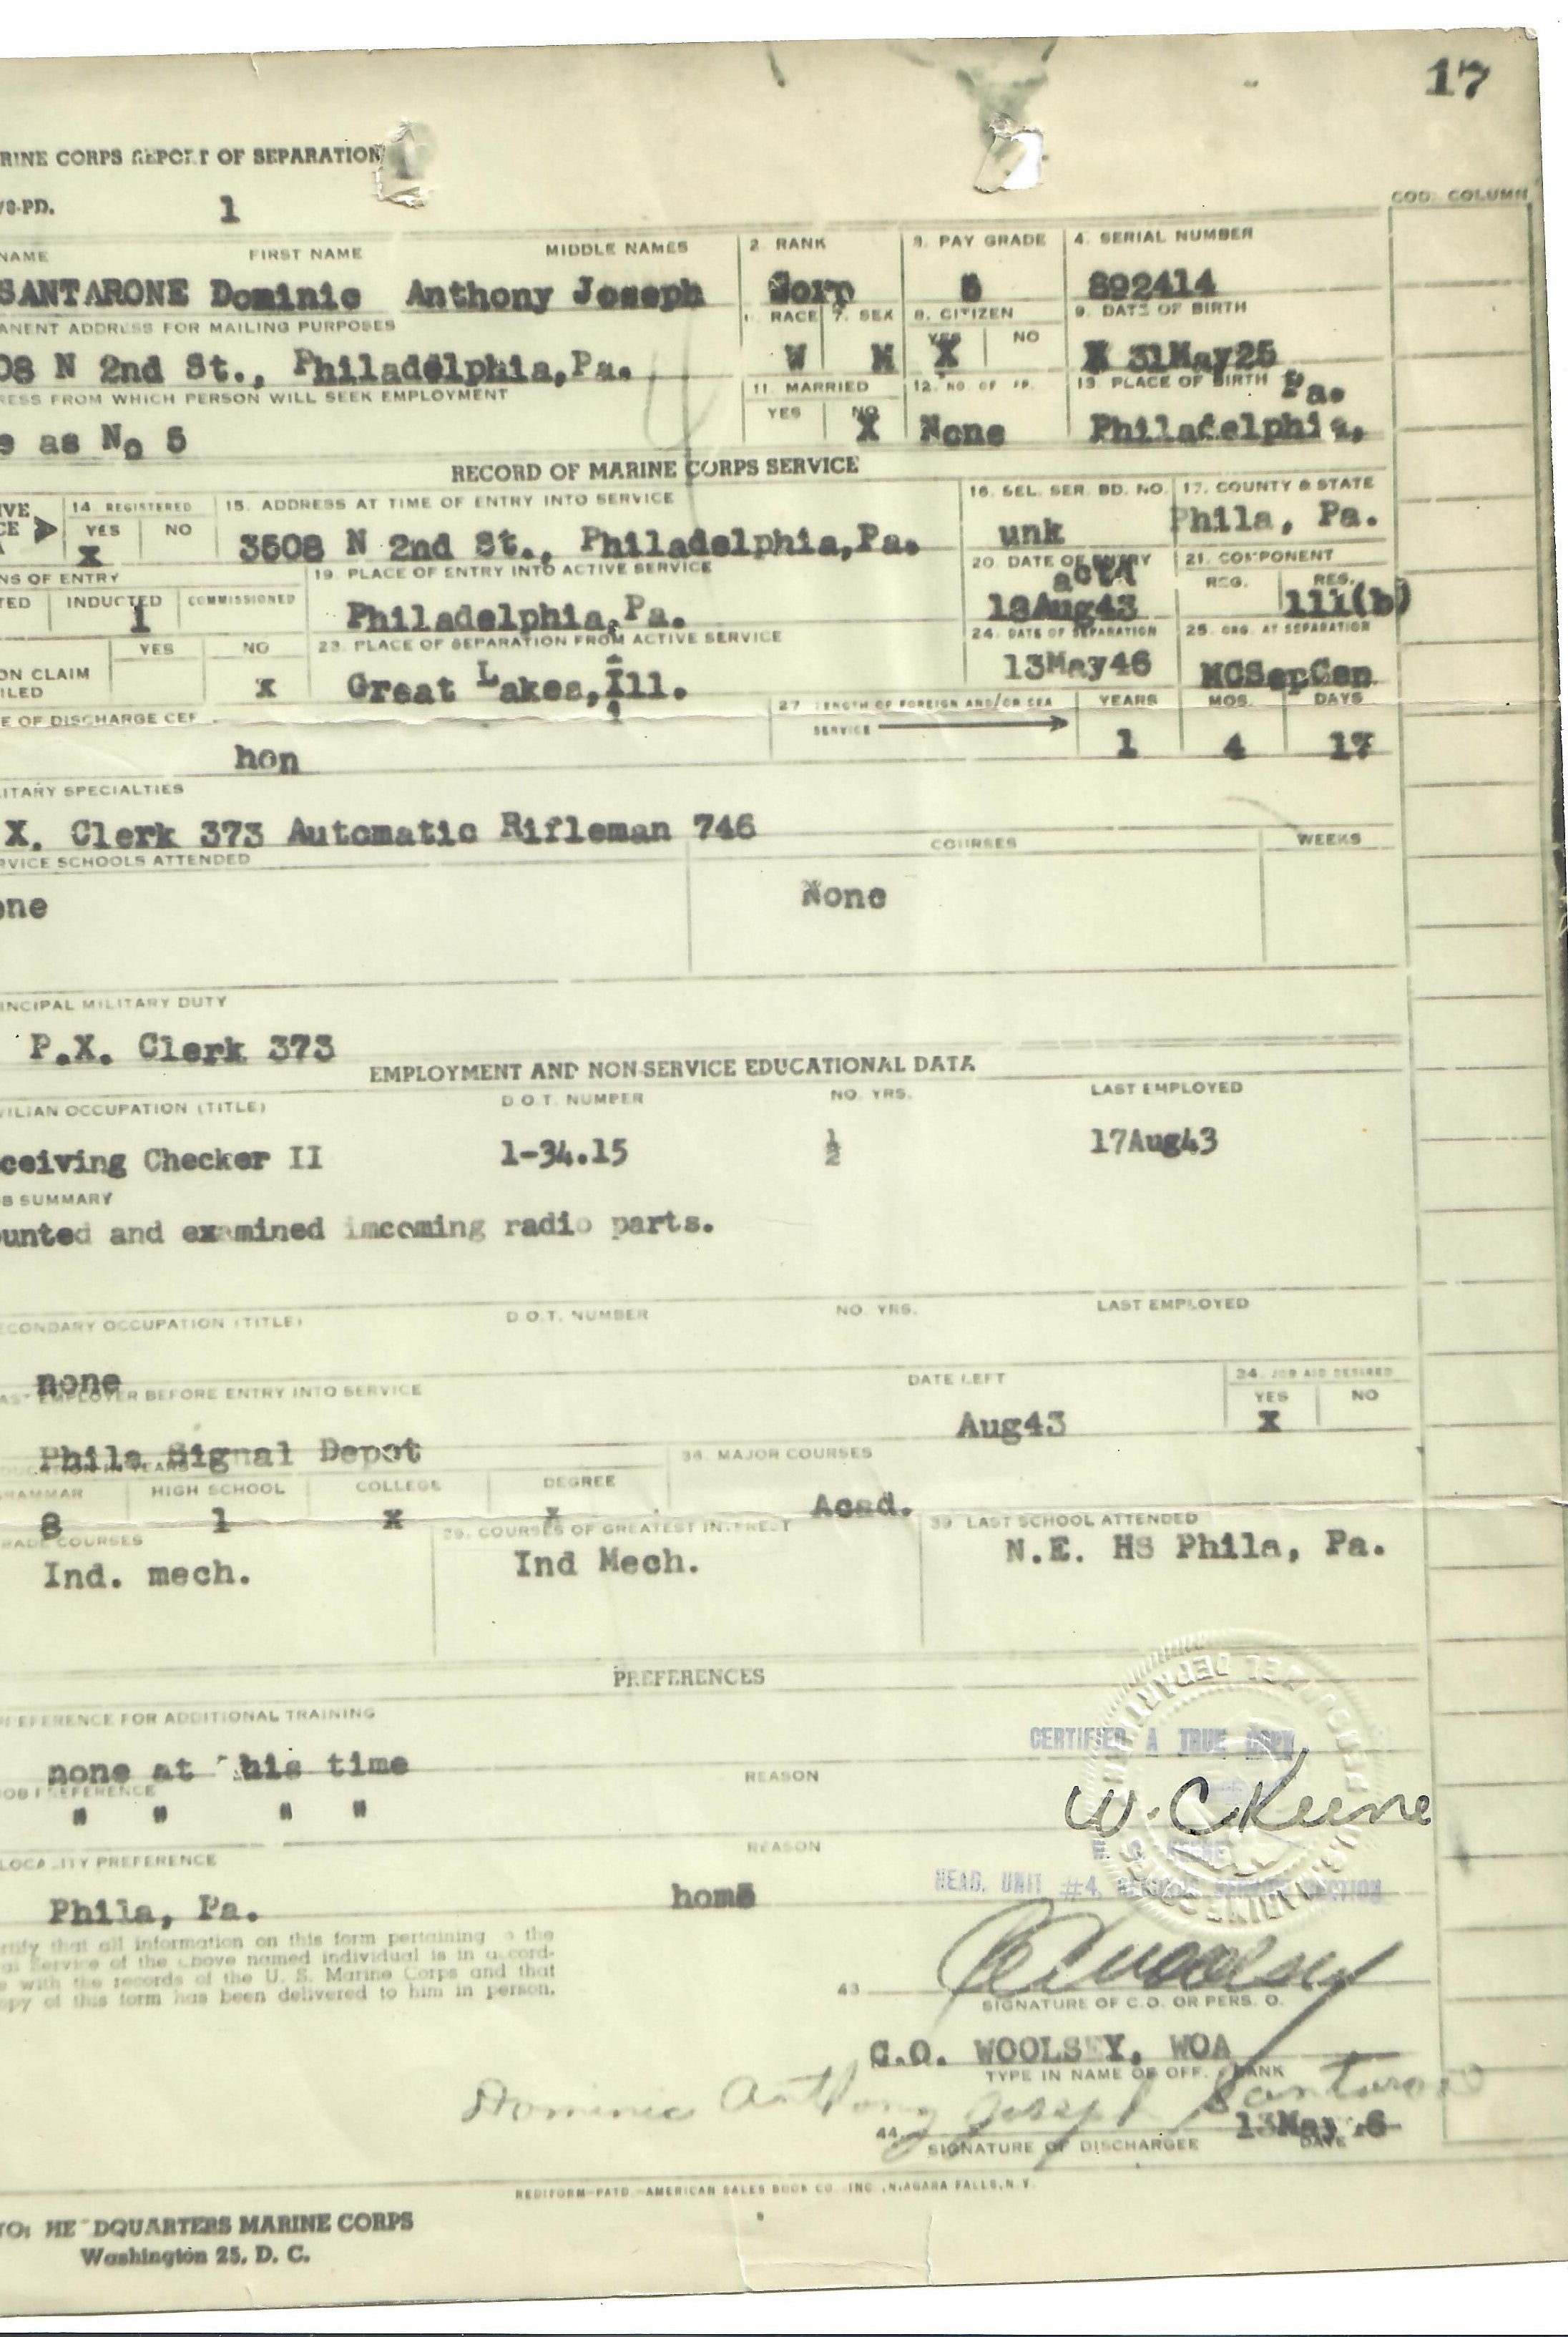 17
RINE CORPS REPORT OF SEPARATION
COD. COLUMN
1
NAME FIRST NAME MIDDLE NAMES 2. RANK 3. PAY GRADE 4. SERIAL NUMBER
SANTARONE Dominic Anthony Joseph 5 892414
ANENT ADDRESS FOR MAILING PURPOSES RACE 7. SEX 8. CITIZEN 9. DATE OF BIRTH
YES NO
08 N 2nd St., Philadelphia,Pa. W M X X 31May25
RESS FROM WHICH PERSON WILL SEEK EMPLOYMENT 11. MARRIED 12. NO. OF 13. PLACE OF BIRTH Pa.
YES NO
e as No 5 X None Philadelphia,
RECORD OF MARINE CORPS SERVICE
14. REGISTERED 15. ADDRESS AT TIME OF ENTRY INTO SERVICE 16. SEL. SER. BD. NO. 17. COUNTY & STATE
YES NO
X 3508 N 2nd St., Philadelphia,Pa. unk Phila, Pa.
NS OF ENTRY 19. PLACE OF ENTRY INTO ACTIVE SERVICE 20. DATE OF ENTRY 21. COMPONENT
TED INDUCTED COMMISSIONED REG. RES.
1 Philadelphia,Pa. 18Aug43 111(b)
YES NO 23. PLACE OF SEPARATION FROM ACTIVE SERVICE 24. DATE OF SEPARATION 25. ORG. AT SEPARATION
ON CLAIM
ILED x Great Lakes,Ill. 13May46 MCSepCen
E OF DISCHARGE CER 27 LENGTH OF FOREIGN AND/OR SEA SERVICE YEARS MOS. DAYS
hon 1 4 17
ITARY SPECIALTIES
X. Clerk 373 Automatic Rifleman 746
RVICE SCHOOLS ATTENDED COURSES WEEKS
one None
INCIPAL MILITARY DUTY
P.X. Clerk 373
EMPLOYMENT AND NON-SERVICE EDUCATIONAL DATA
VILIAN OCCUPATION (TITLE) D.O.T. NUMBER NO. YRS. LAST EMPLOYED
ceiving Checker II 1-34.15 ½ 17Aug43
B SUMMARY
ounted and examined imcoming radio parts.
ECONDARY OCCUPATION (TITLE) D.O.T. NUMBER NO. YRS. LAST EMPLOYED
none
AST EMPLOYER BEFORE ENTRY INTO SERVICE DATE LEFT 34. JOB AID DESIRED
YES NO
Phila Signal Depot Aug43 X
DUCATION IN YEARS 36. MAJOR COURSES
RAMMAR HIGH SCHOOL COLLEGE DEGREE
8 1 x x Acad.
RADE COURSES 38. COURSES OF GREATEST INTEREST 39. LAST SCHOOL ATTENDED
Ind. mech. Ind Mech. N.E. HS Phila, Pa.
PREFERENCES
REFERENCE FOR ADDITIONAL TRAINING
none at this time
JOB PREFERENCE REASON
" " " "
CERTIFIED A TRUE COPY
W. C Keene
W. C. KEENE
HEAD, UNIT #4, SECTION
LOCALITY PREFERENCE REASON
Phila, Pa. home
rtify that all information on this form pertaining to the
al Service of the above named individual is in accord-
e with the records of the U. S. Marine Corps and that
opy of this form has been delivered to him in person.
43 CO Woolsey
SIGNATURE OF C.O. OR PERS. O.
C.O. WOOLSEY, WOA
TYPE IN NAME OF OFF. RANK
Dominic Anthony Joseph Santarone
44 13May 6
SIGNATURE OF DISCHARGEE DATE
REDIFORM-PATD.-AMERICAN SALES BOOK CO. INC., NIAGARA FALLS, N.Y.
TO: HE DQUARTERS MARINE CORPS
Washington 25, D. C.